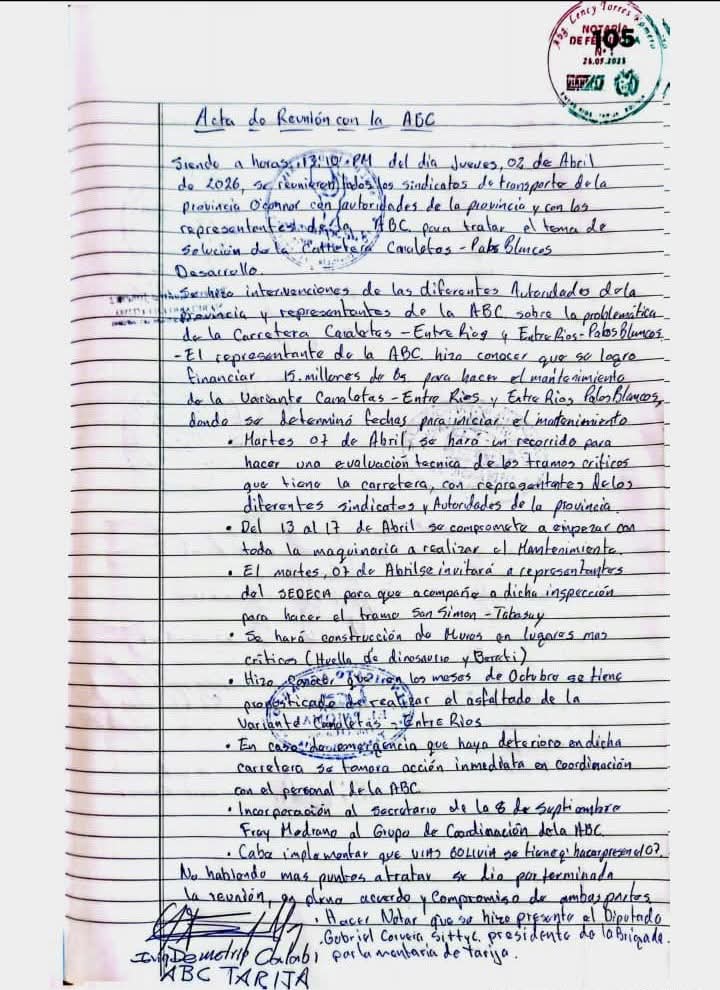 Abg. Lency Torres Romero
NOTARÍA
DE FE
105
N° 1
ENTRE RIOS - TARIJA - BOLIVIA
Acta de Reunión con la ABC
Siendo a horas 13:10 PM del dia Jueves, 02 de Abril
de 2026, se reunieron todos los sindicatos de transporte de la
provincia O'connor con autoridades de la provincia y con los
representantes de la ABC. para tratar el tema de
solución de la Carretera Canaletas - Palos Blancos
Desarrollo
Se hizo intervenciones de las diferentes Autoridades de la
provincia y representantes de la ABC. sobre la problemática
de la Carretera Canaletas - Entre Rios y Entre Rios - Palos Blancos.
- El representante de la ABC. hizo conocer que se logro
financiar 15. millones de Bs para hacer el mantenimiento
de la Variante Canaletas - Entre Rios y Entre Rios Palos Blancos,
donde se determinó fechas para iniciar el mantenimiento
• Martes 07 de Abril, se hará un recorrido para
hacer una evaluación tecnica de los tramos criticos
que tiene la carretera, con representantes de los
diferentes sindicatos y Autoridades de la provincia.
• Del 13 al 17 de Abril se compromete a empezar con
toda la maquinaria a realizar el Mantenimiento.
• El martes, 07 de Abril se invitará a representantes
del SEDECA para que acompañe a dicha inspección
para hacer el tramo San Simon - Tabasuy
• Se hará construcción de Muros en lugares mas
criticos (Huella de dinosaurio y Bereti)
• Hizo conocer que en los meses de Octubre se tiene
pronosticado de realizar el asfaltado de la
Variante Canaletas - Entre Rios
• En caso de emergencia que haya deterioro en dicha
carretera se tomara acción inmediata en coordinación
con el personal de la ABC.
• Incorporación al secretario de la 8 de Septiembre
Fray Medrano al Grupo de Coordinación de la ABC.
• Cabe implementar que VIAS BOLIVIA se tiene q' hacer presen el 07.
No hablendo mas puntos a tratar se dio por terminada
la reunión, en pleno acuerdo y compromiso de ambas partes
• Hacer Notar que se hizo presente el Diputado
Gabriel Sittyc. presidente de la Brigada.
por la de tarija.
Ing Demetrio
ABC TARIJA